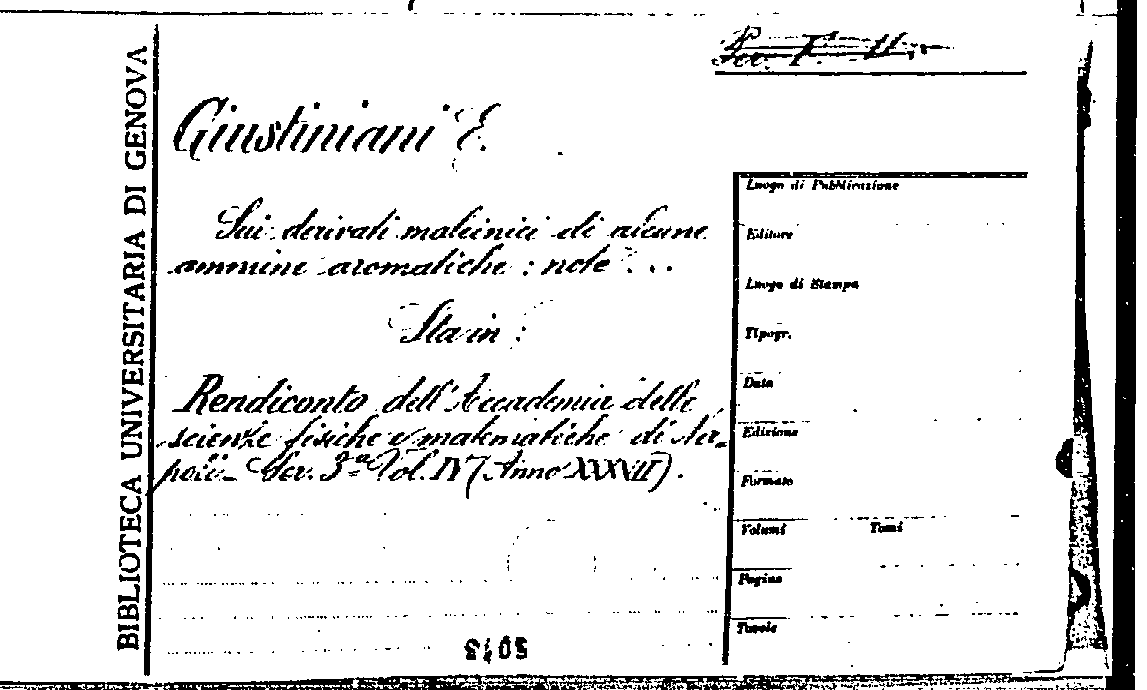 Per. F. 11.
BIBLIOTECA UNIVERSITARIA DI GENOVA
Giustiniani E.
Sui derivati maleinici di alcune
ammine aromatiche : note ...
Sta in :
Rendiconto dell'Accademia delle
scienze fisiche e matematiche di Na-
poli - Ser. 3ª Vol. IV (Anno XXXVII).
Luogo di Pubblicazione
Editore
Luogo di Stampa
Tipogr.
Data
Edizione
Formato
Volumi Tomi
Pagine
Tavole